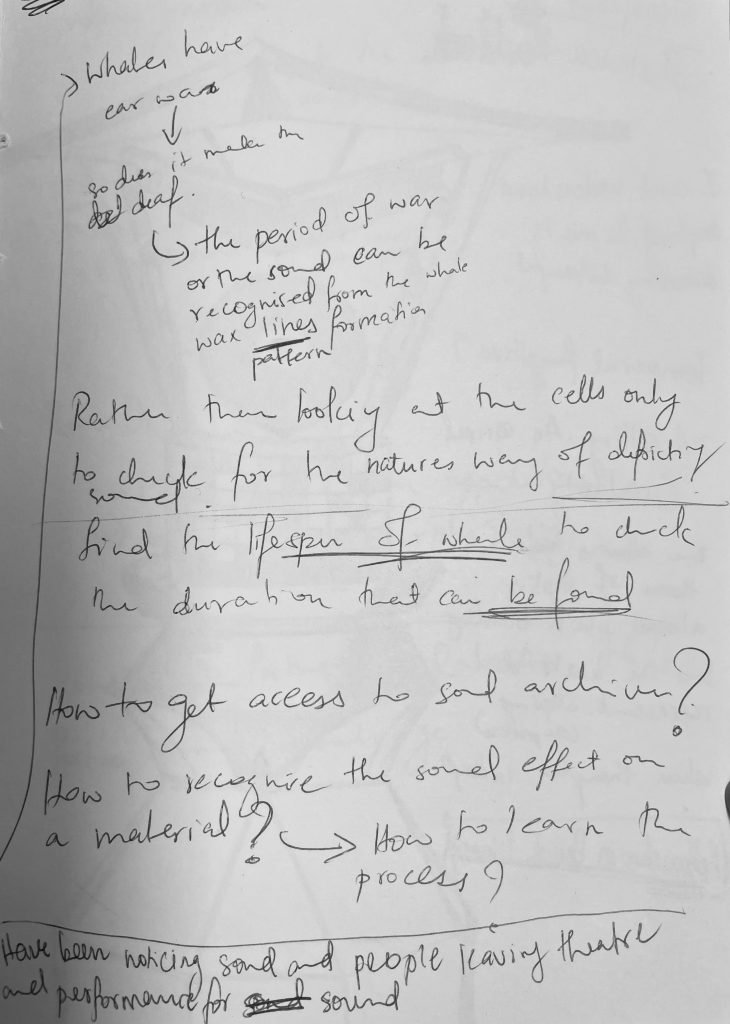 Whales have
ear wax
so does it make the
deaf.
the period of war
or the sound can be
recognised from the whale
wax lines formation
pattern
Rather than looking at the cells only
to check for the natures way of depicting
sound.
find the lifespan of whale to check
the duration that can be found
How to get access to sound archives?
How to recognise the sound effect on
a material?
How to learn the
process?
Have been noticing sound and people leaving theatre
and performance for sound